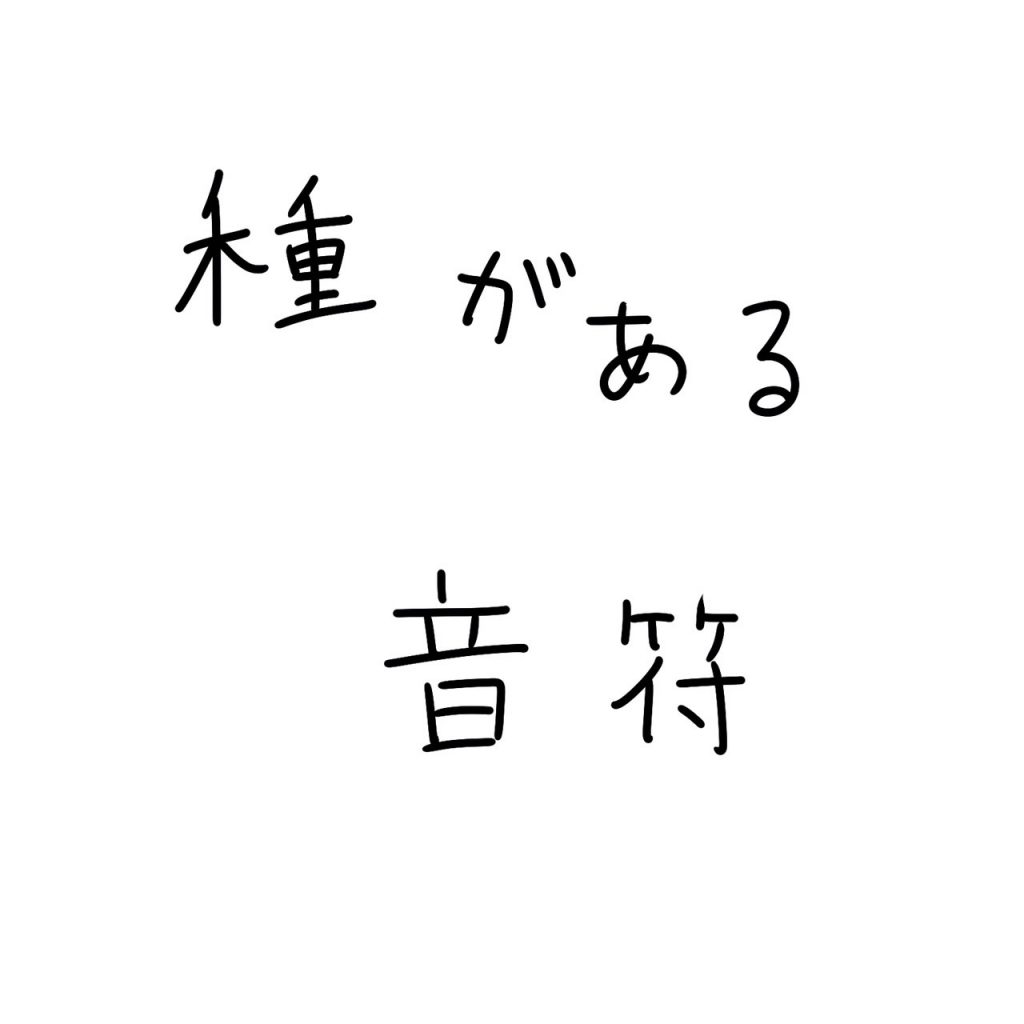 種がある
音符